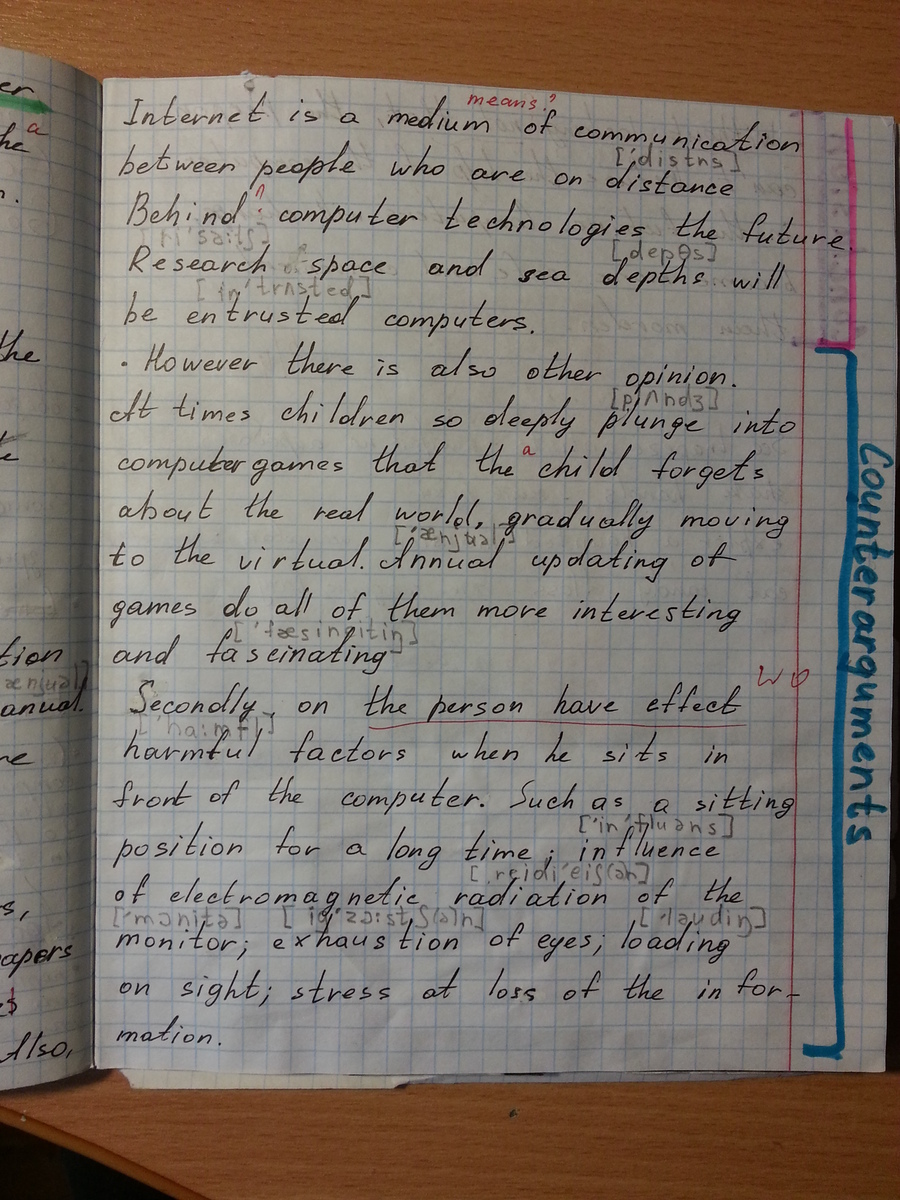 er
he a
n.
the
tion
[ænjuəl]
anual.
ne
s,
apers
Also,
means?
Internet is a medium of communication
['distns]
between people who are on distance
Behind computer technologies the future.
[depθs]
Research space and sea depths will
[in'trʌsted]
be entrusted computers.
· However there is also other opinion.
[plʌndʒ]
At times children so deeply plunge into
a
computer games that the child forgets
about the real world, gradually moving
['ænjuəl]
to the virtual. Annual updating of
games do all of them more interesting
['fæsineitiŋ]
and fascinating
wo
Secondly, on the person have effect
['ha:mfl]
harmful factors when he sits in
front of the computer. Such as a sitting
['in'fluəns]
position for a long time; influence
[reidi'eiʃ(ə)n]
of electromagnetic radiation of the
['mɔnitə] [ig'zɔ:stʃ(ə)n] ['laudiŋ]
monitor; exhaustion of eyes; loading
on sight; stress at loss of the infor-
mation.
Counterarguments